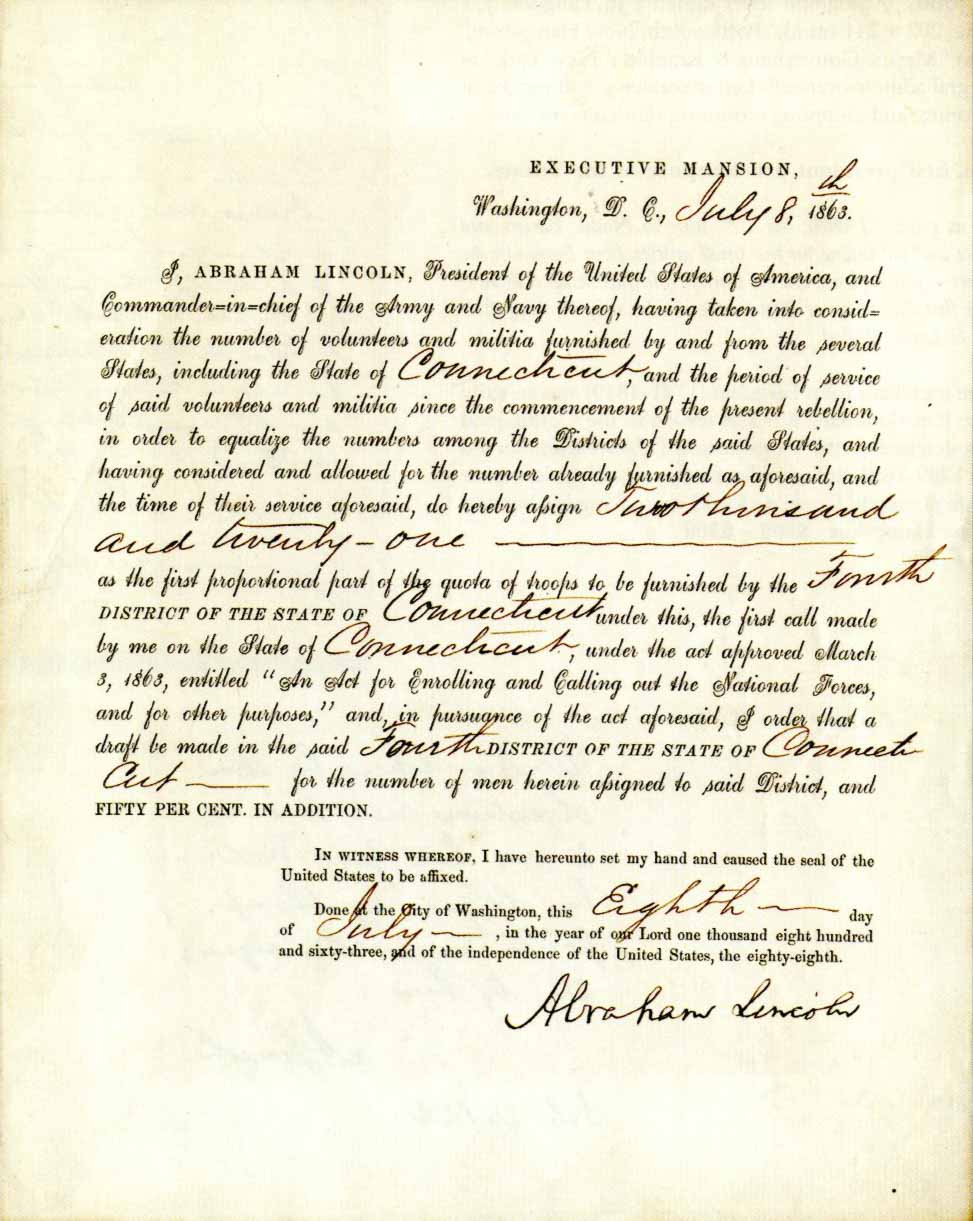 EXECUTIVE MANSION,
Washington, D. C., July 8, th 1863.
I, ABRAHAM LINCOLN, President of the United States of America, and
Commander=in=chief of the Army and Navy thereof, having taken into consid=
eration the number of volunteers and militia furnished by and from the several
States, including the State of Connecticut, and the period of service
of said volunteers and militia since the commencement of the present rebellion,
in order to equalize the numbers among the Districts of the said States, and
having considered and allowed for the number already furnished as aforesaid, and
the time of their service aforesaid, do hereby aſsign Two thousand
and twenty-one
as the first proportional part of the quota of troops to be furnished by the Fourth
DISTRICT OF THE STATE OF Connecticut under this, the first call made
by me on the State of Connecticut, under the act approved March
3, 1863, entitled "An Act for Enrolling and Calling out the National Forces,
and for other purposes," and, in pursuance of the act aforesaid, I order that a
draft be made in the said Fourth DISTRICT OF THE STATE OF Connecti
cut for the number of men herein aſsigned to said District, and
FIFTY PER CENT. IN ADDITION.
IN WITNESS WHEREOF, I have hereunto set my hand and caused the seal of the
United States to be affixed.
Done at the City of Washington, this Eighth day
of July, in the year of our Lord one thousand eight hundred
and sixty-three, and of the independence of the United States, the eighty-eighth.
Abraham Lincoln